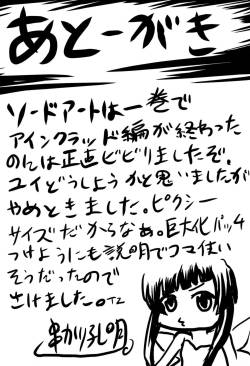 あとーがき
ソードアートは一巻で
アインクラッド編が終わった
のんは正直ビビりましたぞ。
ユイどうしようかと思いましたが
やめときました。ピクシー
サイズだからなぁ。巨大化パッチ
つけようにも説明でコマ使い
そうだったので
さけました。